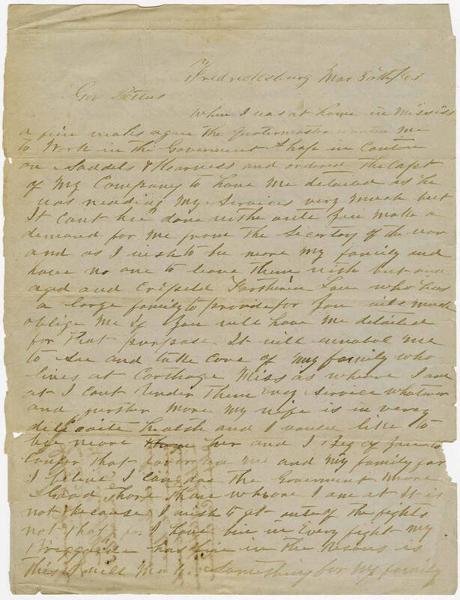 Fredricksburg Mar 30th/63
Gov Pettus
When I was at home in Mississ
a few weaks agow the quotermaster wanted me
to Work in the Goverment Shop in Canton
on Saddels & Harness and ordered the Capt
of My Company to have me detailed as he
was needing My Services very much but
It Cant bee done with oute you make a
demand for me from the Secetory of the war
and as I wish to be neare my family and
have no one to leave them with but one
aged and cripeld Farther in Law who has
a large family to provide for you wil much
oblige me if you will have me detailed
for that purpose. It will ennable me
to See and take Care of my family who
lives at Carthage Miss as where I am
at I Cant Render them eney Service whatever
and further more my wife is in verey
dellicate health and I would like to
bee neare her and I Beg of you to
Confer that favor on me and my family for
I believe I Can doo the Goverment more
Good thare than whare I am at It is
not because I wish to git oute of the fights
not that for I have bin in Every fight my
Briggade has bin in the Reason is
this I will Make Something for my family